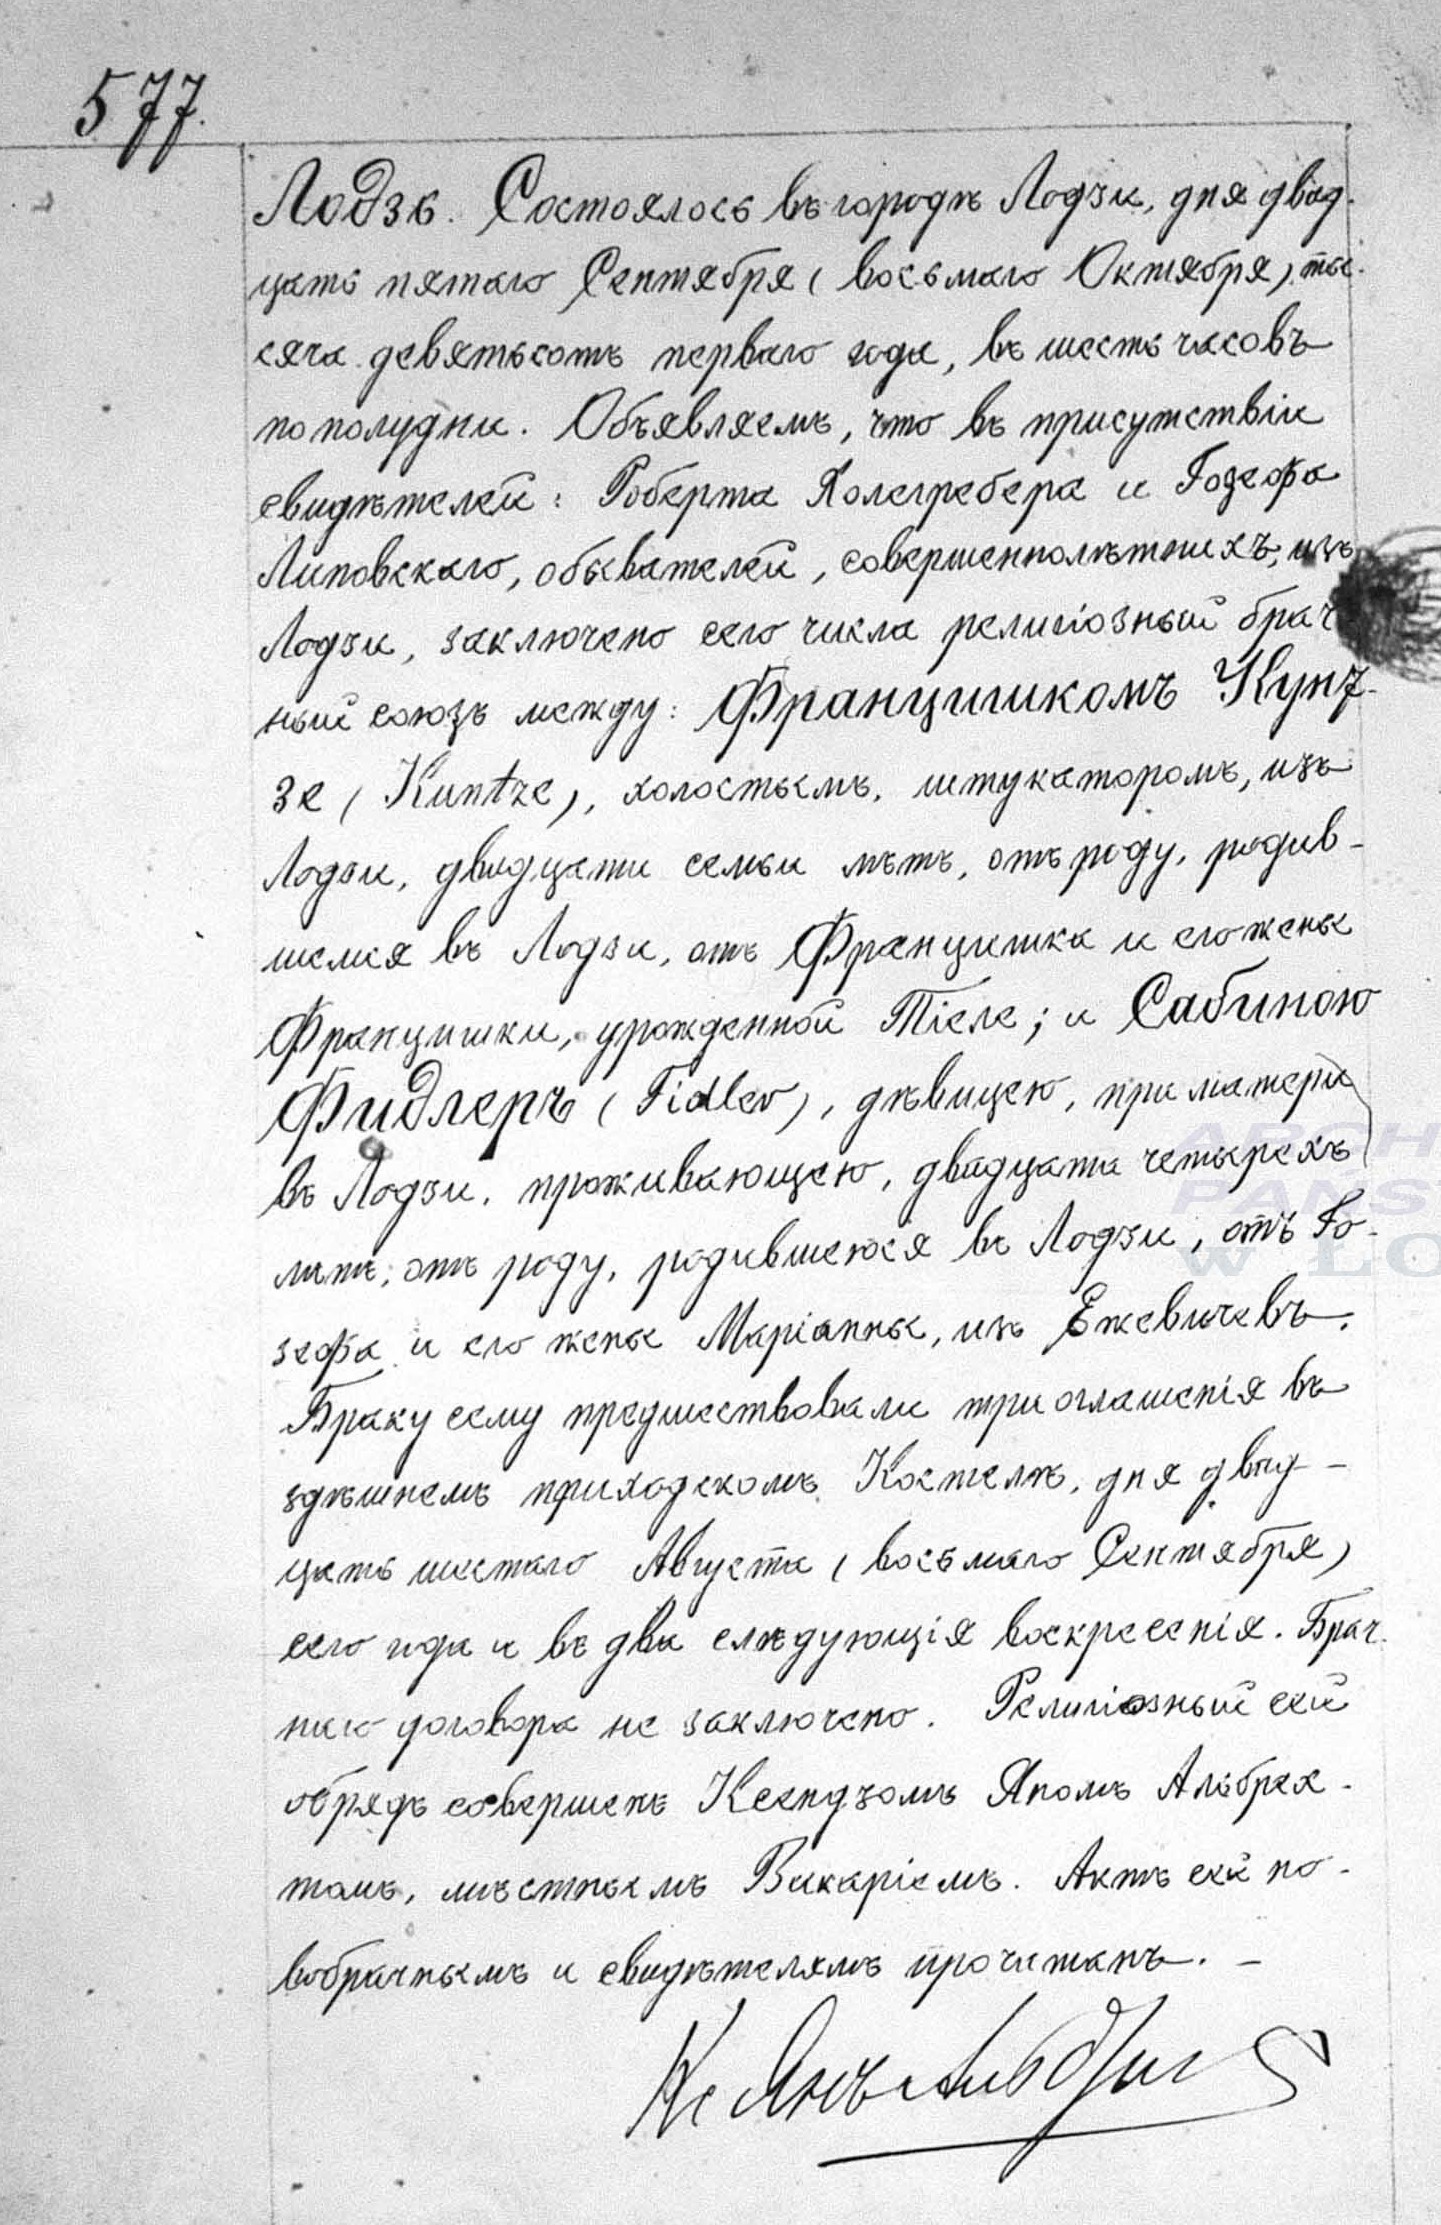 577.
Лодзь. Состоялось въ городѣ Лодзи, дня двад-
цать пятаго Сентября (восьмаго Октября) ты-
сяча девятьсотъ перваго года, въ шесть часовъ
пополудни. Объявляемъ, что въ присутствіи
свидѣтелей: Роберта Холегребера и Іозефа
Липовскаго, обывателей, совершеннолѣтнихъ, изъ
Лодзи, заключено сего числа религіозный брач
ный союзъ между: Францишкомъ Кунт-
зе (Kuntze), холостымъ, штукаторомъ, изъ
Лодзи, двадцати семи лѣтъ, отъ роду, родив-
шемся въ Лодзи, отъ Францишка и его жены
Францишки, урожденной Тіеле; и Сабиною
Фидлеръ (Fidler), дѣвицею, при матери
въ Лодзи, проживающею, двадцати четырехъ
лѣтъ, отъ роду, родившеюся въ Лодзи, отъ Іо-
зефа и его жены Маріанны, изъ Ежевичевъ.
Браку сему предшествовали три оглашенія въ
здѣшнемъ приходскомъ Костелѣ, дня двад-
цать шестаго Августа (восьмаго Сентября)
сего года и въ два слѣдующія воскресенія. Брач-
наго договора не заключено. Религіозный сей
обрядъ совершенъ Ксендзомъ Яномъ Альбрех-
томъ, мѣстнымъ Викаріемъ. Актъ сей но-
вобрачнымъ и свидѣтелямъ прочитанъ. –
Кс Янъ
ARCH
PAŃST
w ŁO